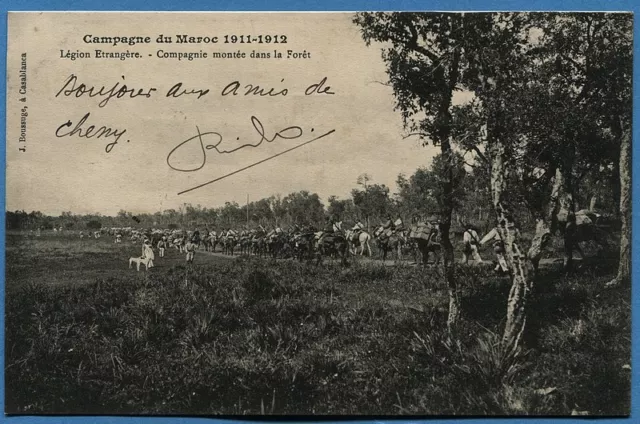 Campagne du Maroc 1911-1912
Légion Etrangère. - Compagnie montée dans la Forêt
J. Boussuge, à Casablanca
Bonjour aux amis de
Cheny.